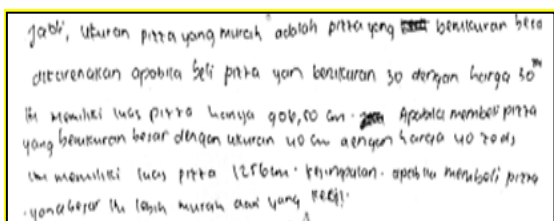 Jadi, ukuran pizza yang murah adalah pizza yang berukuran besa
dikarenakan apabila beli pizza yan berukuran 30 dengan harga 30
ini memiliki luas pizza hanya 906,50 cm. Apabila membeli pizza
yang berukuran besar dengan ukuran 40 cm dengan harga 40 zeds,
ini memiliki luas pizza 1256 cm. kesimpulan. apabila membeli pizza
yang besar ini lebih murah dari yang kecil.